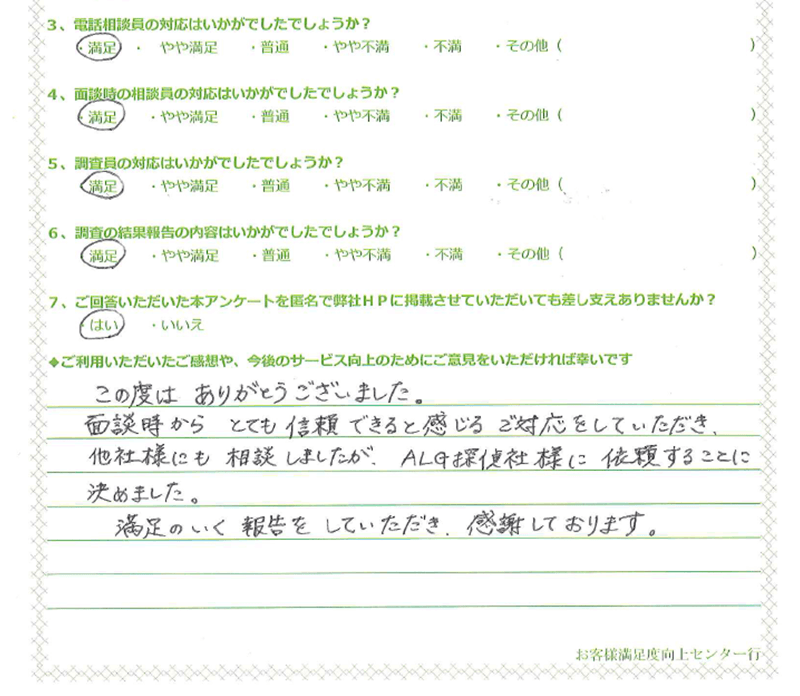 3、電話相談員の対応はいかがでしたでしょうか？
・満足 ・ やや満足 ・普通 ・やや不満 ・不満 ・その他（ ）
4、面談時の相談員の対応はいかがでしたでしょうか？
・満足 ・やや満足 ・普通 ・やや不満 ・不満 ・その他（ ）
5、調査員の対応はいかがでしたでしょうか？
・満足 ・やや満足 ・普通 ・やや不満 ・不満 ・その他（ ）
6、調査の結果報告の内容はいかがでしたでしょうか？
・満足 ・やや満足 ・普通 ・やや不満 ・不満 ・その他（ ）
7、ご回答いただいた本アンケートを匿名で弊社ＨＰに掲載させていただいても差し支えありませんか？
・はい ・いいえ
◆ご利用いただいたご感想や、今後のサービス向上のためにご意見をいただければ幸いです
この度は ありがとうございました。
面談時から とても信頼できると感じる ご対応をしていただき、
他社様にも 相談しましたが、ALG探偵社様に 依頼することに
決めました。
満足のいく 報告を していただき、感謝しております。
お客様満足度向上センター行